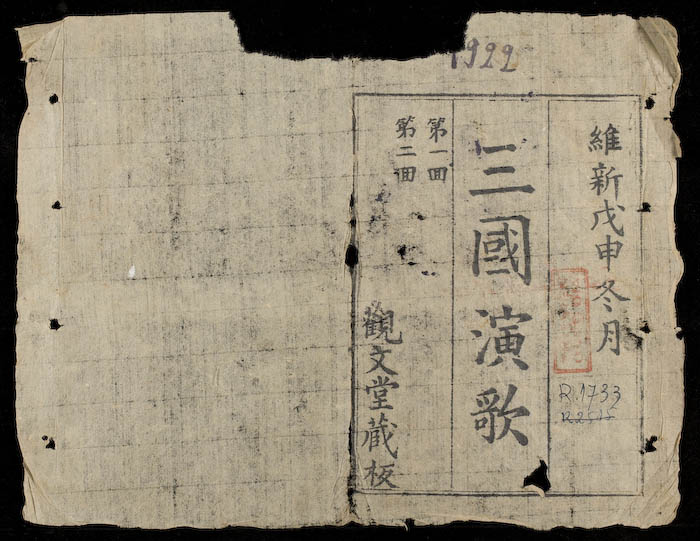 1922
維新戊申冬月
三國演歌
第一回
第二回
觀文堂藏板
R.1733
R2515